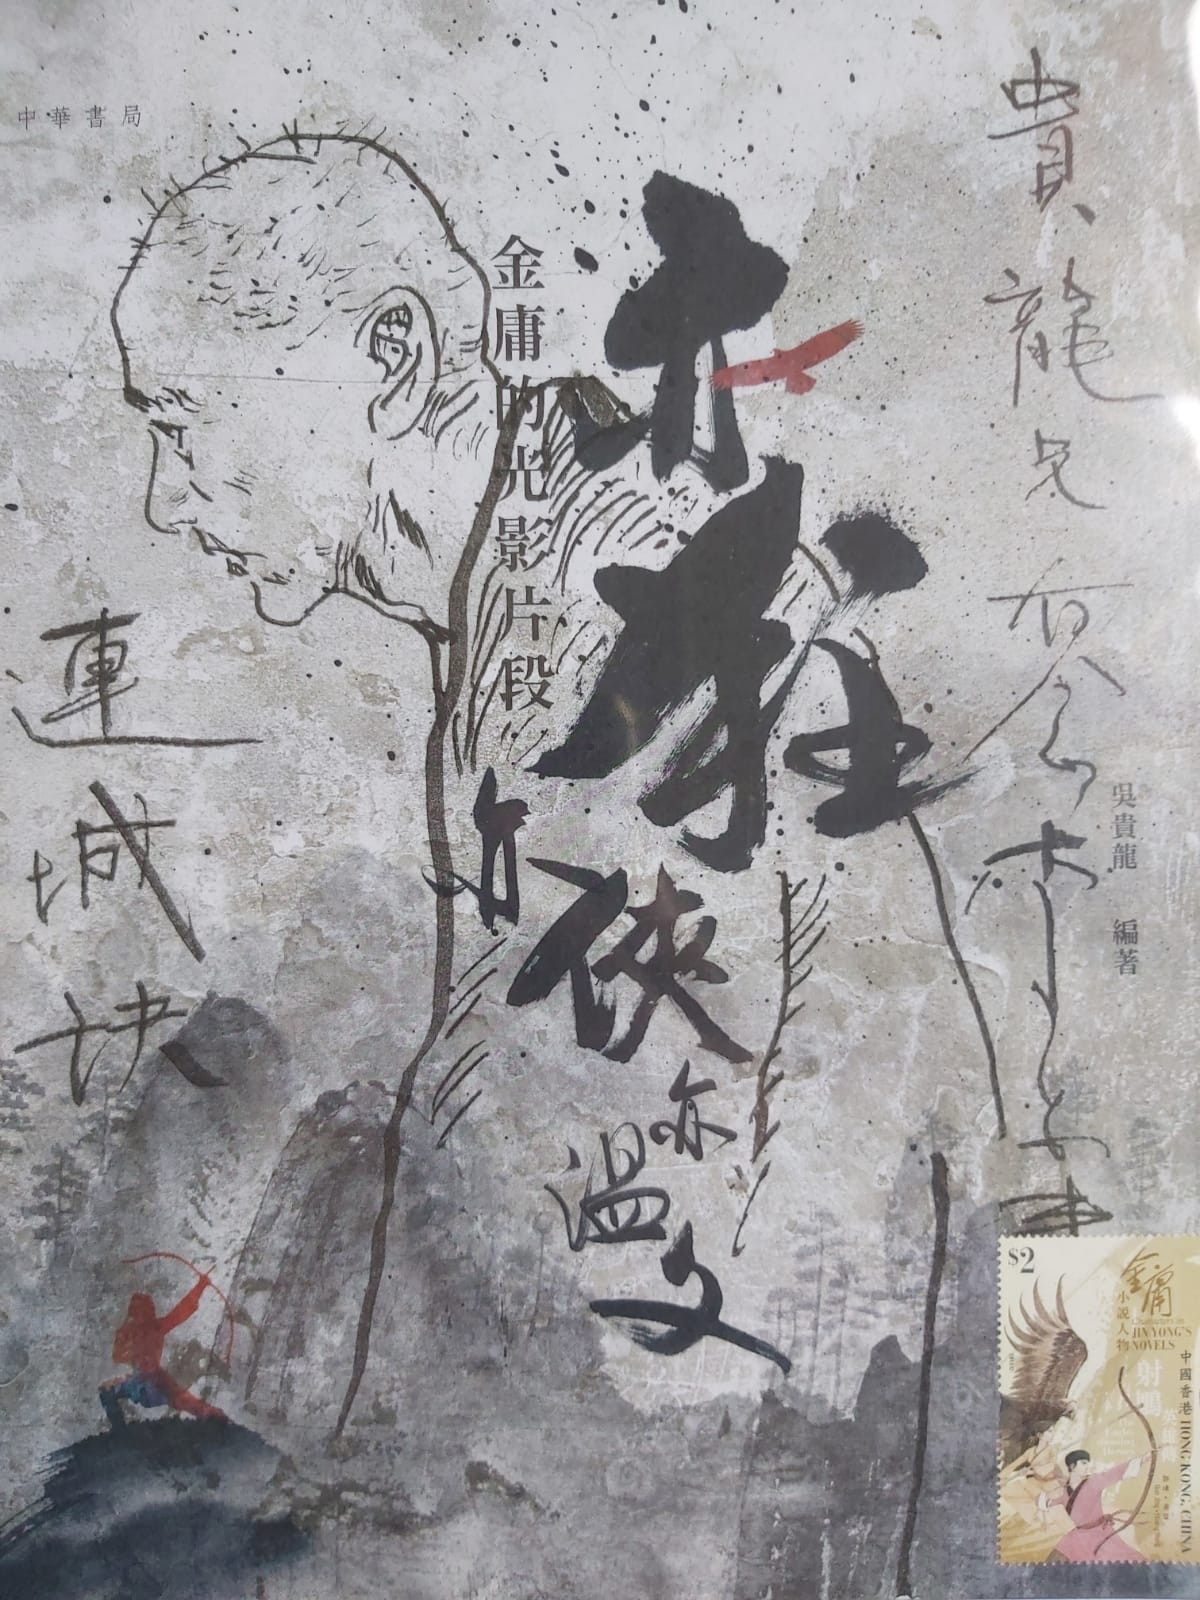 中華書局
金庸的光影片段
亦狂
亦俠
亦溫文
吳貴龍 編著
貴龍兄
連城诀
$2
金庸
小說人物
Characters in
JIN YONG'S
NOVELS
射鵰
英雄傳
中國香港 HONG KONG, CHINA